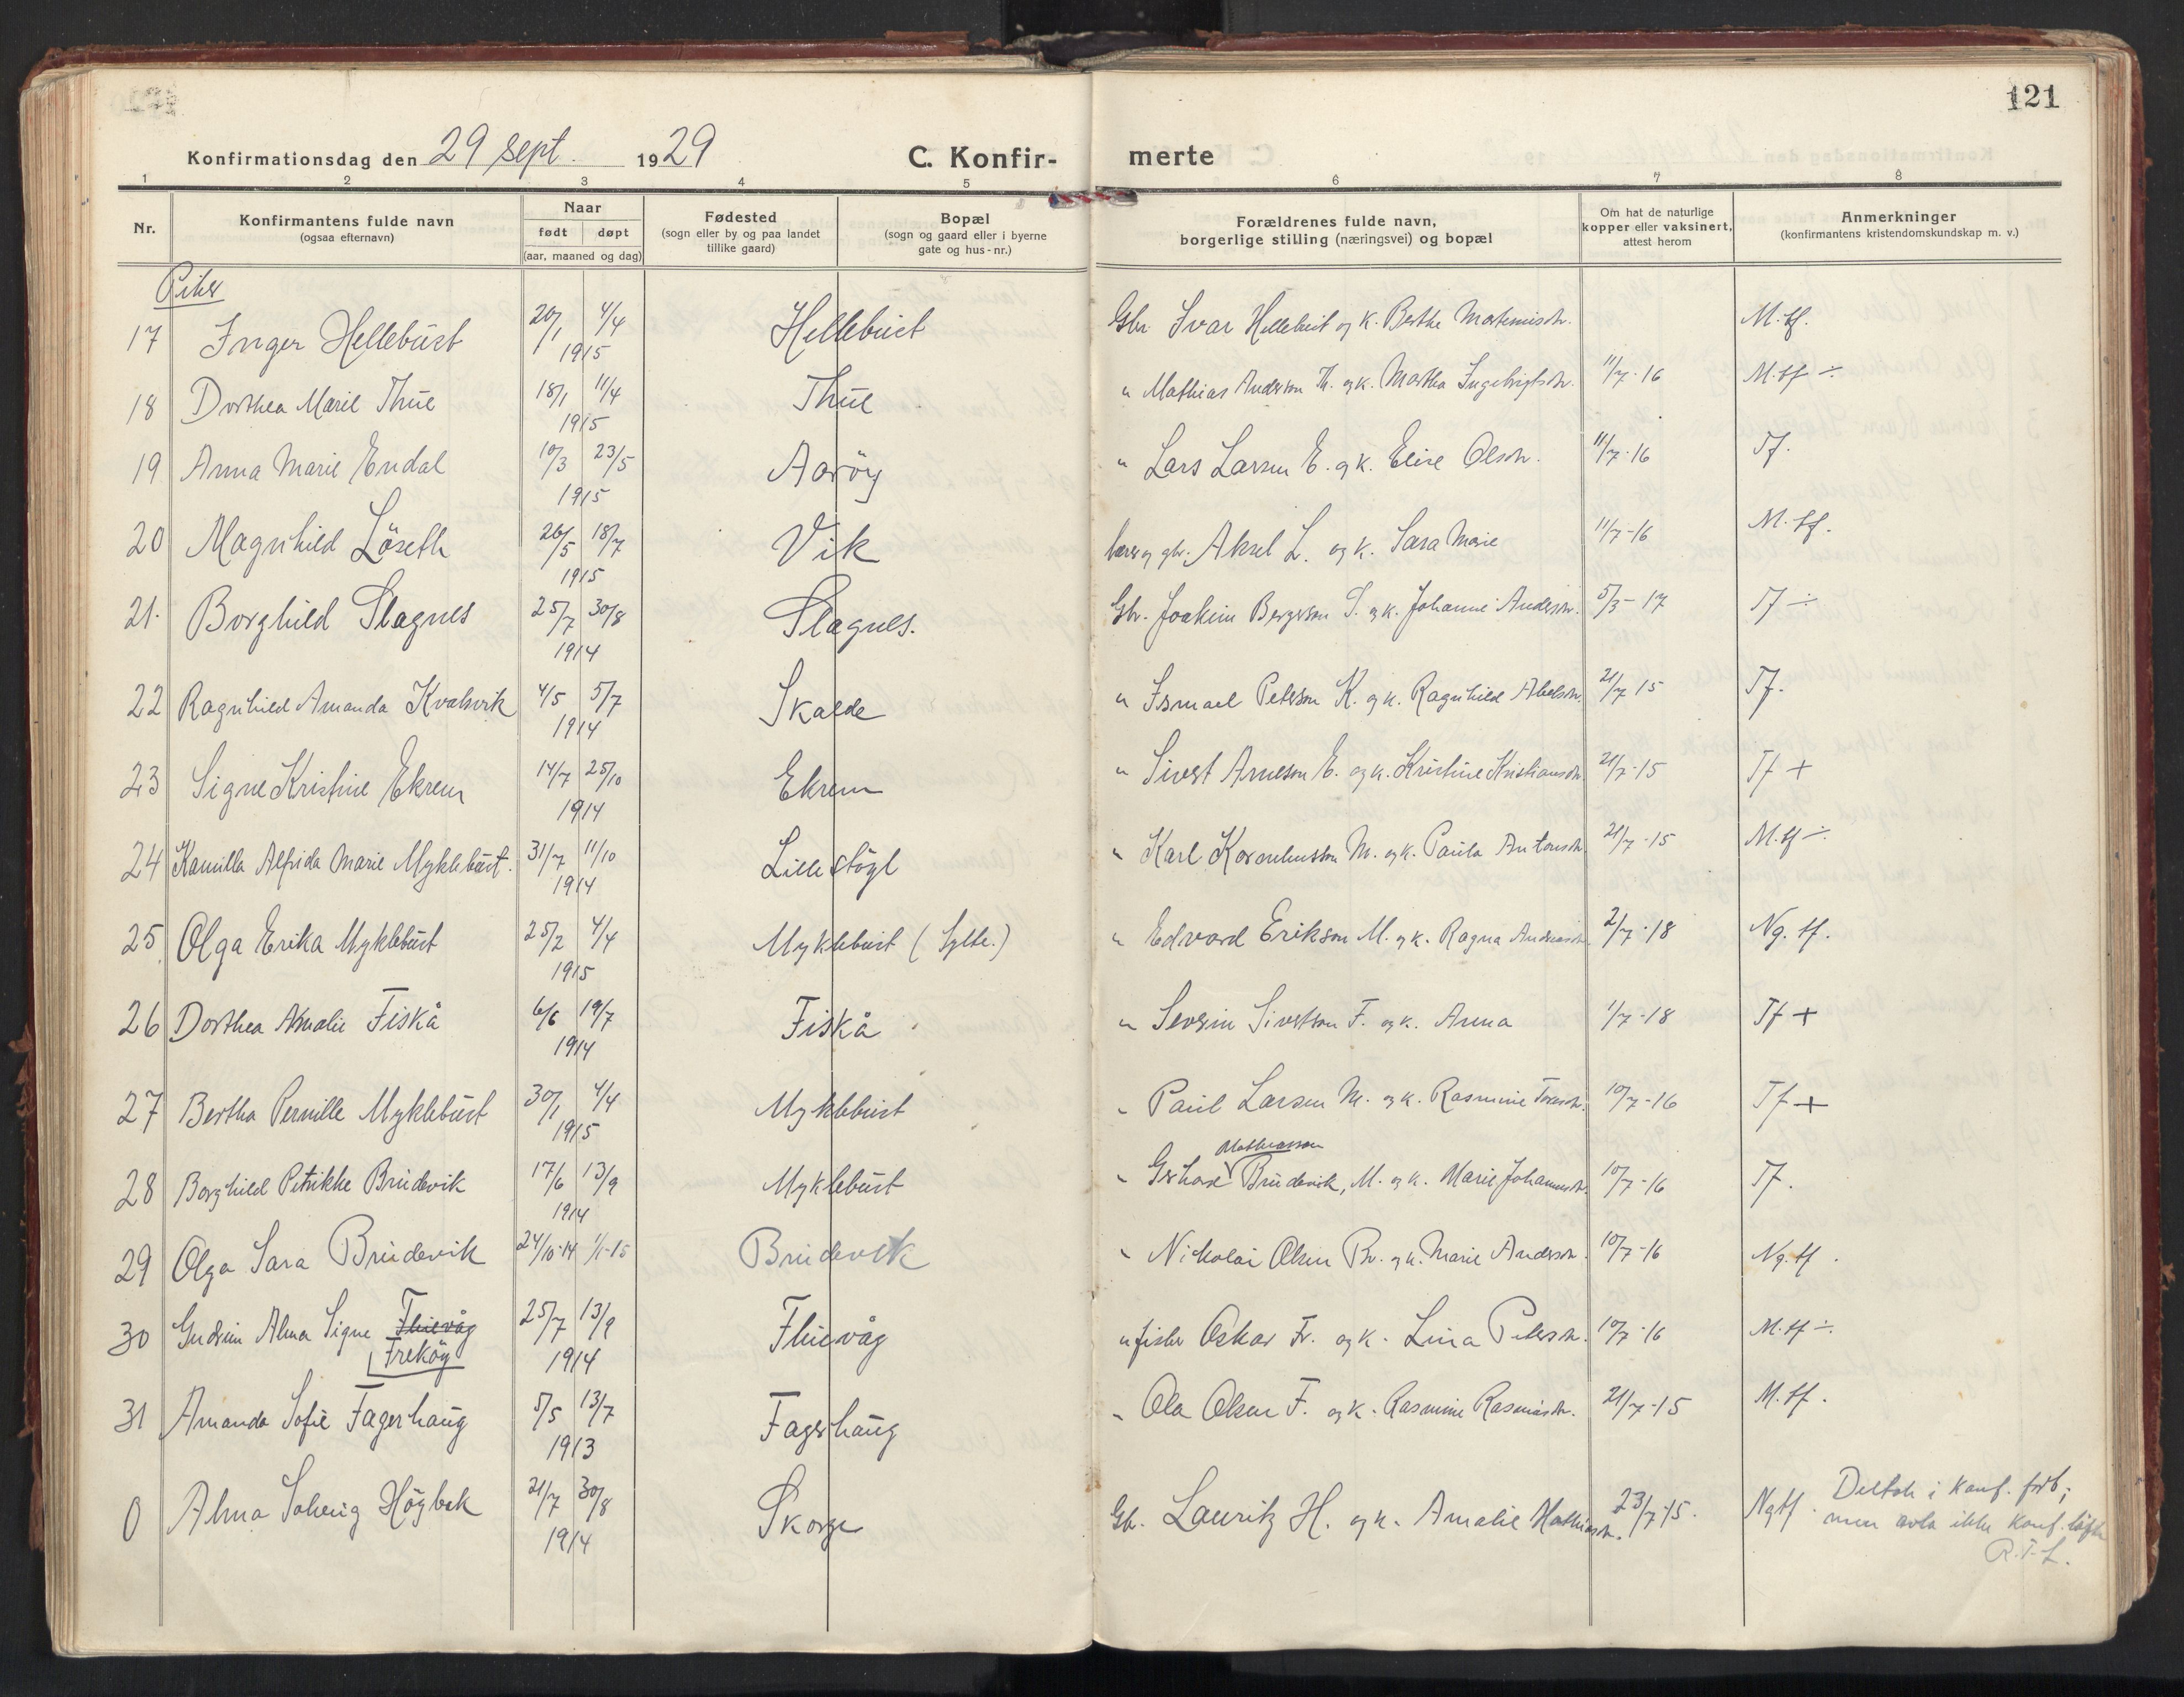 121
Konfirmationsdag den 29 sept. 1929 C. Konfir- merte
1 2 3 4 5 6 7 8
Nr.
Konfirmantens fulde navn
(ogsaa efternavn)
Naar
født døpt
(aar, maaned og dag)
Fødested
(sogn eller by og paa landet
tillike gaard)
Bopæl
(sogn og gaard eller i byerne
gate og hus-nr.)
Forældrenes fulde navn,
borgerlige stilling (næringsvei) og bopæl
Om hat de naturlige
kopper eller vaksinert,
attest herom
Anmerkninger
(konfirmantens kristendomskundskap m. v.)
Piker
17 Inger Hellebust 20/1 4/4 1915 Hellebust Gbr. Ivar Hellebust og k. Berthe Martinusdtr. M.tf.
18 Dorthea Marie Thue 18/1 11/4 1915 Thue " Mathias Anderson Th. og k. Martha Ingebrigtsdtr. 11/7-16 M.tf ÷
19 Anna Marie Endal 10/3 23/5 1915 Aaröy " Lars Larsen E. og k. Elise Olsdtr. 11/7-16 Tf.
20 Magnhild Löseth 26/5 18/7 1915 Vik lærer og gbr. Aksel L. og k. Sara Marie 11/7-16 M.tf.
21. Borghild Slagnes 25/7 30/8 1914 Slagnes. Gbr. Joakim Bergeson S. og k. Johanne Andersdtr. 5/3-17 Tf ÷
22 Ragnhild Amanda Kvalsvik 4/5 5/7 1914 Skalde " Ismael Peterson K. og k. Ragnhild Abelsdtr. 21/7 15 Tf.
23 Signe Kristine Ekrem 14/7 25/10 1914 Ekrem " Sivert Arneson E. og k. Kristine Kristiansdtr. 21/7-15 Tf +
24 Kamilla Alfrida Marie Myklebust. 31/7 11/10 1914 Lillestögl " Karl Kornelusson M. og k. Paula Antonsdtr. 21/7-15 M.tf ÷
25. Olga Erika Myklebust 25/2 4/4 1915 Myklebust (Sylte.) " Edvard Erikson M. og k. Ragna Andreasdtr. 2/7-18 Ng. tf.
26 Dorthea Amalie Fiskå 6/6 19/7 1914 Fiskå " Severin Sivertson F. og k. Anna 1/7-18 Tf +
27 Bertha Pernille Myklebust 30/1 4/4 1915 Myklebust " Paul Larsen M. og k. Rasmine Toresdtr. 10/7-16 Tf +
Mathiasson
28 Borghild Petrikke Brudevik 17/6 13/9 1914 Myklebust " Gerhard Brudevik, M. og k. Marie Johannesdtr. 10/7-16 Tf.
29 Olga Sara Brudevik 24/10-14 1/1-15 Brudevik " Nikolai Olsen Br. og k. Marie Andersdtr. 10/7-16 Ng. tf.
30 Gudrun Alma Signe Fluevåg 25/7 13/9 1914 Fluevåg " fisker Oskar Fr. og k. Lina Petersdtr. 10/7-16 M.tf ÷.
Freköy
31 Amanda Sofie Fagerhaug 5/5 13/7 1913 Fagerhaug " Ola Olsen F. og k. Rasmine Rasmusdtr. 21/7-15 M.tf.
0 Alma Solveig Höybak 21/7 30/8 1914 Skorge Gbr. Lauritz H. og k. Amalie Mathiasdtr. 23/7-15. Ngtf. Deltok i konf. forb;
men avla ikke konf. löfte
R.T-L.